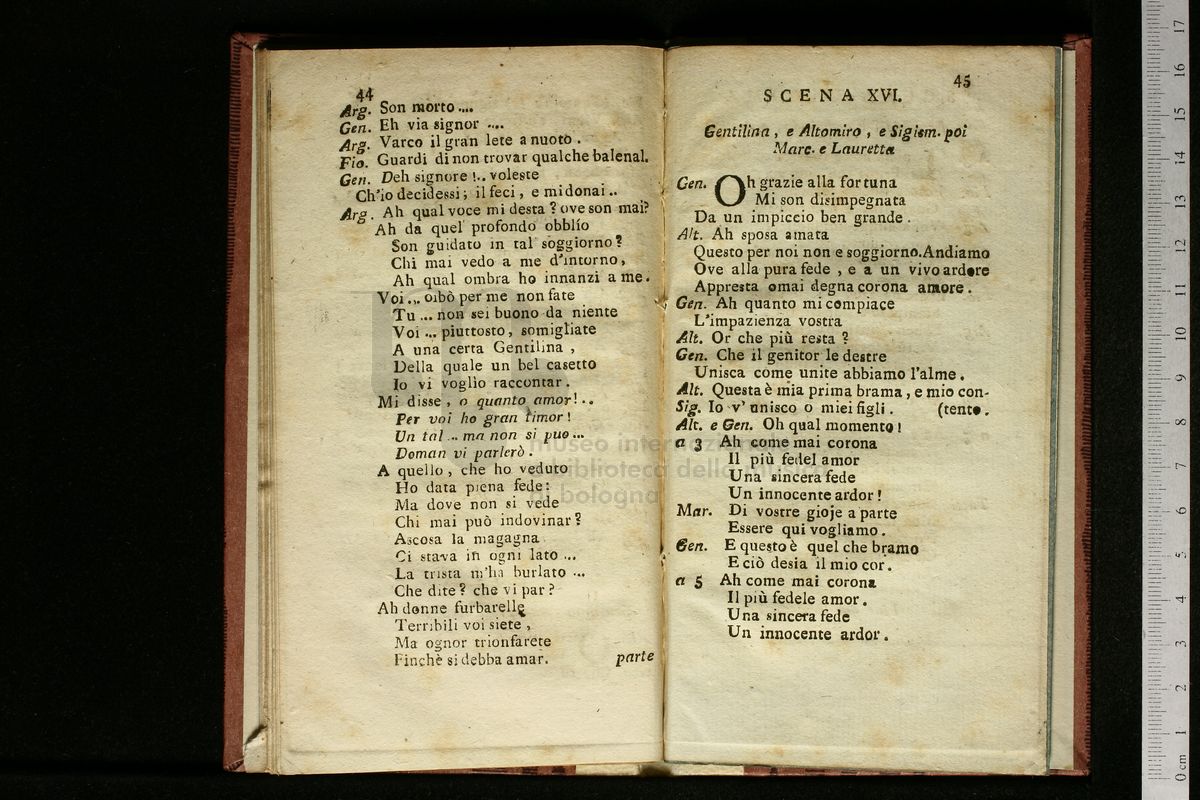 44
Arg. Son morto ....
Gen. Eh via signor ....
Arg. Varco il gran lete a nuoto .
Fio. Guardi di non trovar qualche balenal.
Gen. Deh signore !.. voleste
Ch'io decidessi ; il feci , e mi donai ..
Arg. Ah qual voce mi desta ? ove son mai?
Ah da quel profondo obblío
Son guidato in tal soggiorno ?
Chi mai vedo a me d'intorno ,
Ah qual ombra ho innanzi a me .
Voi ... oibò per me non fate
Tu ... non sei buono da niente
Voi ... piuttosto , somigliate
A una certa Gentilina ,
Della quale un bel casetto
Io vi voglio raccontar .
Mi disse , o quanto amor! ..
Per voi ho gran timor !
Un tal .. ma non si puo ...
Doman vi parlerò .
A quello , che ho veduto
Ho data piena fede :
Ma dove non si vede
Chi mai può indovinar ?
Ascosa la magagna
Ci stava in ogni lato ...
La trista m'ha burlato ...
Che dite ? che vi par ?
Ah donne furbarelle
Terribili voi siete ,
Ma ognor trionfarete
Finchè si debba amar.
parte
45
SCENA XVI.
Gentilina , e Altomiro , e Sigism. poi
Marc. e Lauretta
Gen. Oh grazie alla fortuna
Mi son disimpegnata
Da un impiccio ben grande .
Alt. Ah sposa amata
Questo per noi non e soggiorno. Andiamo
Ove alla pura fede , e a un vivo ardore
Appresta omai degna corona amore .
Gen. Ah quanto mi compiace
L'impazienza vostra
Alt. Or che più resta ?
Gen. Che il genitor le destre
Unisca come unite abbiamo l'alme .
Alt. Questa è mia prima brama , e mio con-
Sig. Io v' unisco o miei figli . (tento .
Alt. e Gen. Oh qual momento !
a 3 Ah come mai corona
Il più fedel amor
Una sincera fede
Un innocente ardor !
Mar. Di vostre gioje a parte
Essere qui vogliamo .
Gen. E questo è quel che bramo
E ciò desia il mio cor .
a 5 Ah come mai corona
Il più fedele amor .
Una sincera fede
Un innocente ardor .
museo internazionale
e biblioteca della musica
di bologna
0 cm 1 2 3 4 5 6 7 8 9 10 11 12 13 14 15 16 17